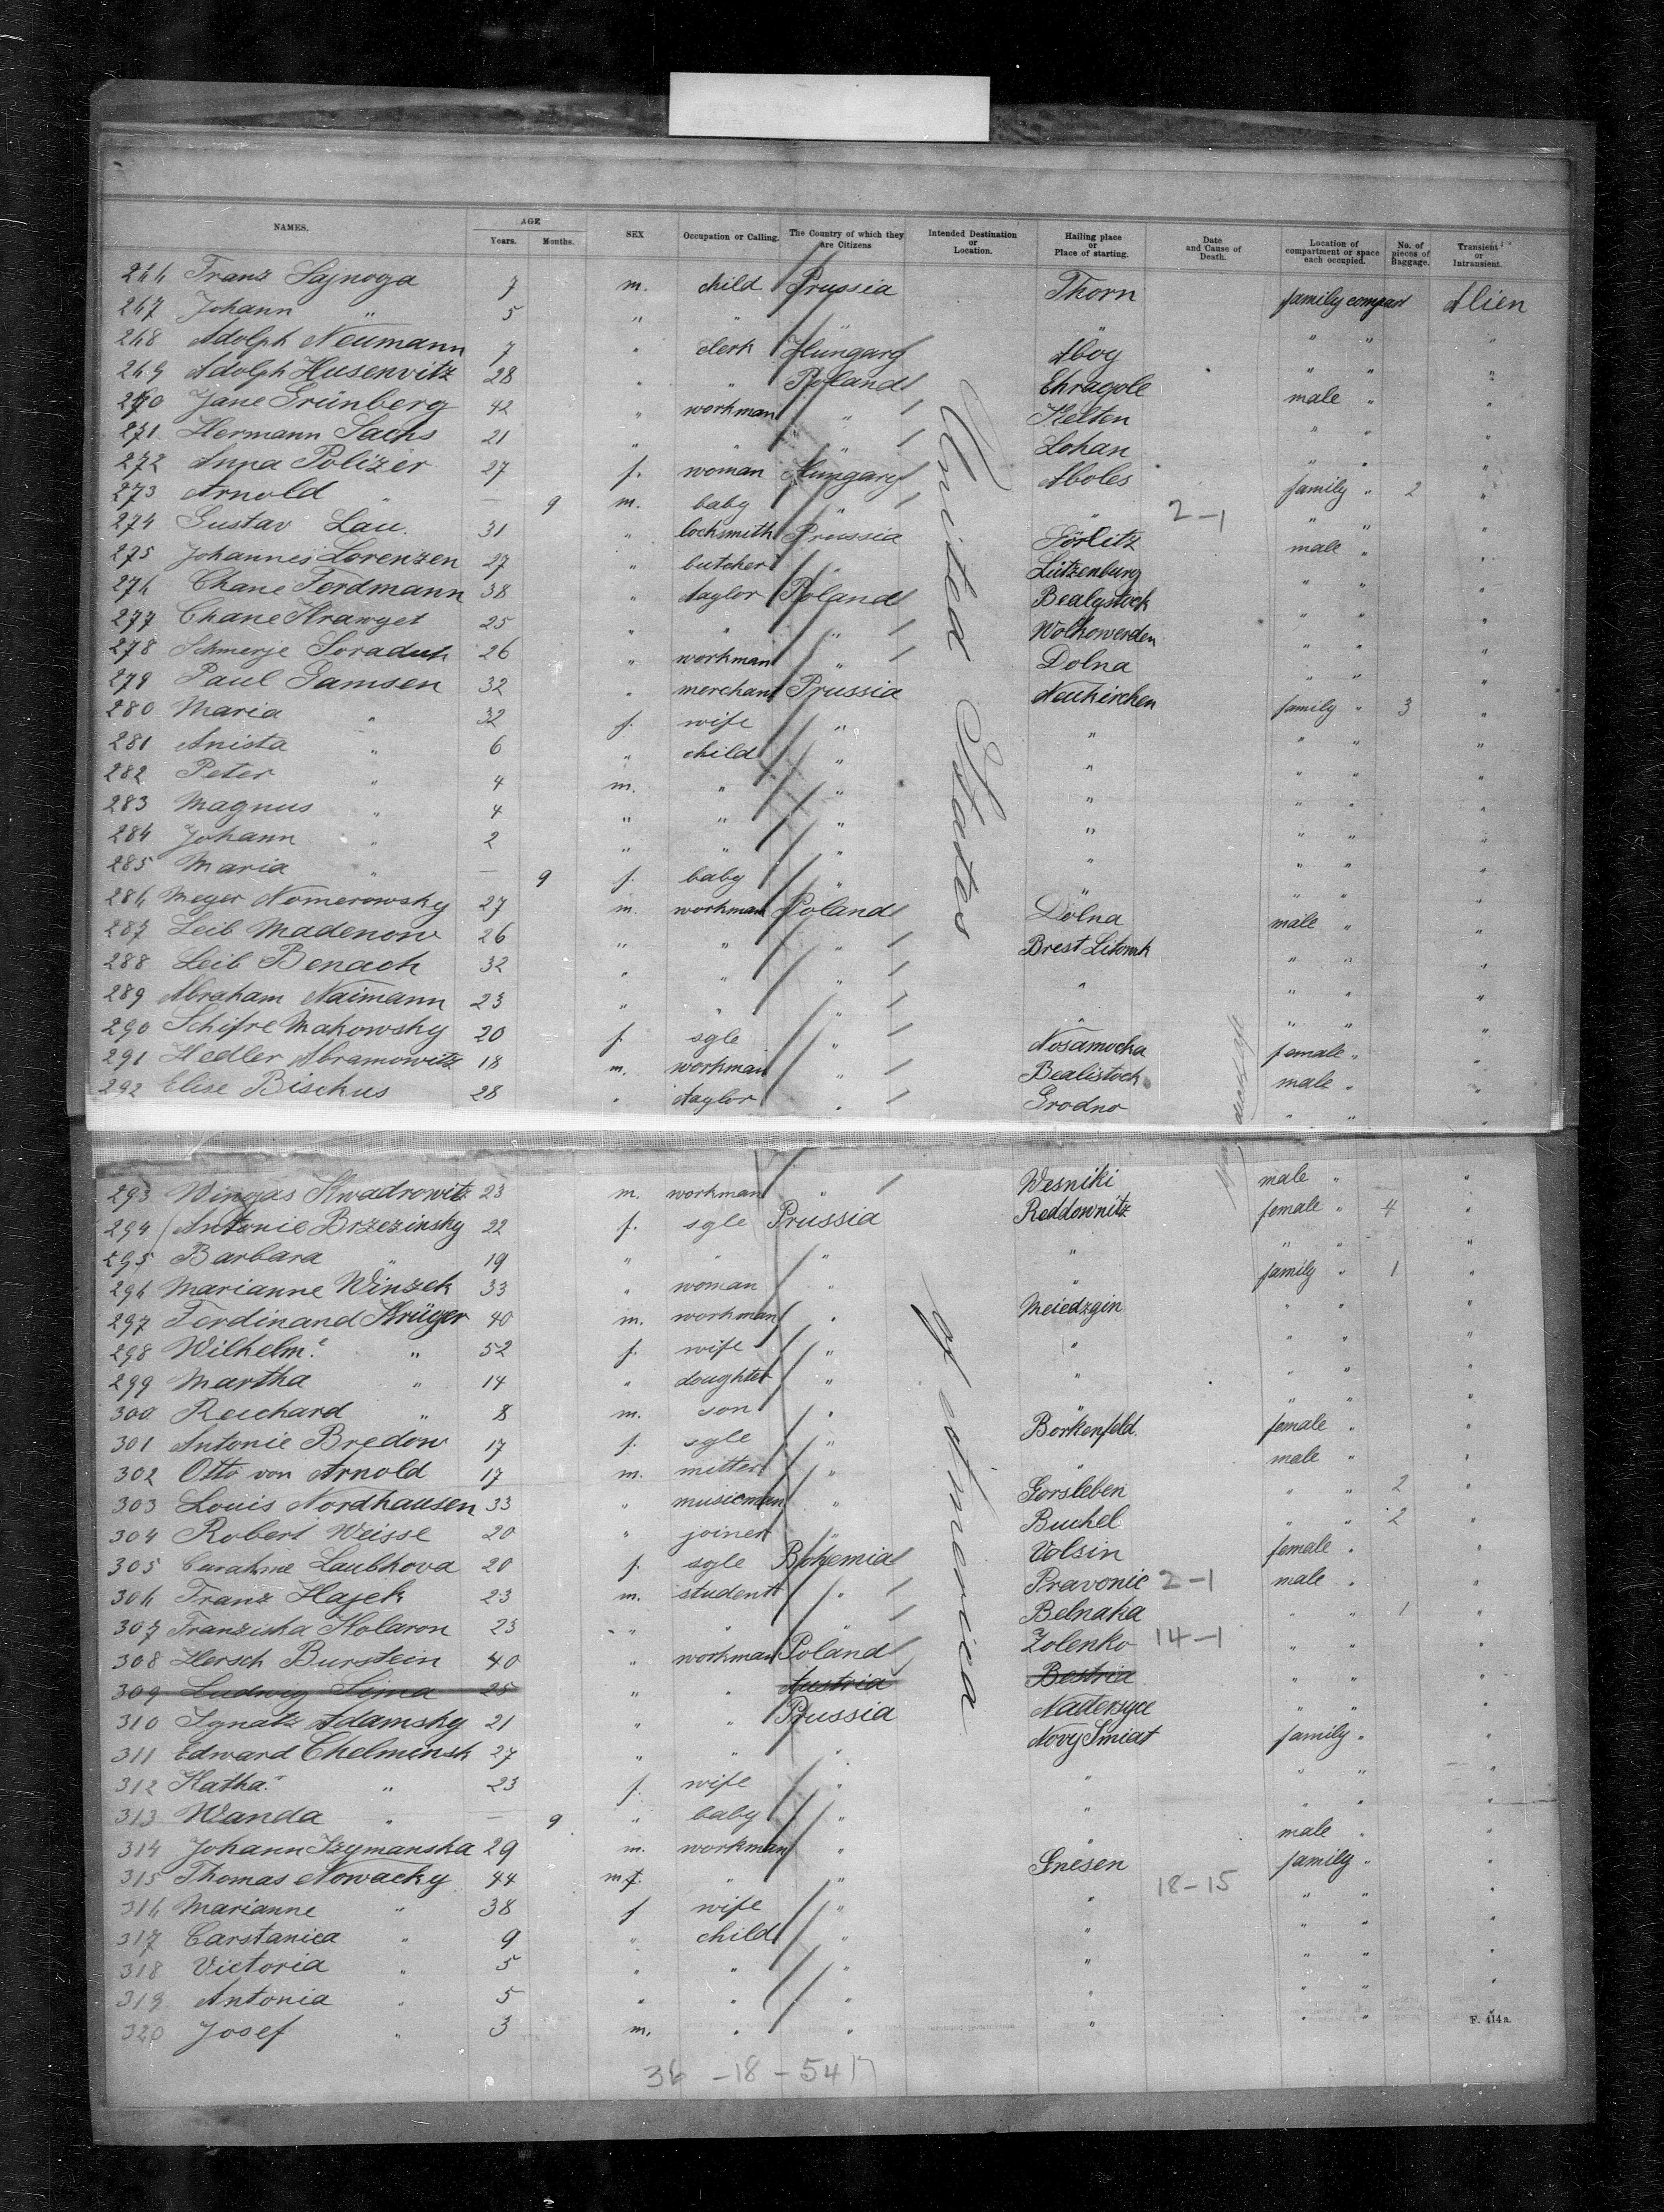 NAMES. AGE Years. Months. SEX Occupation or Calling. The Country of which they are Citizens Intended Destination or Location. Hailing place or Place of starting. Date and Cause of Death. Location of compartment or space each occupied. No. of pieces of Baggage. Transient or Intransient.
266 Franz Sajnoga 7 m. child Prussia Thorn family compart Alien
267 Johann " 5 " " " " " " "
268 Adolph Neumann 7 " clerk Hungary Aboy " " "
269 Adolph Husenvitz 28 " " Poland Ehragole male " "
270 Jane Grünberg 42 " workman " Kelten " " "
271 Hermann Sachs 21 " " " Lohan " " "
272 Anna Polizer 27 f. woman Hungary Aboles family " 2 "
273 Arnold " — 9 m. baby " " 2-1 " " "
274 Gustav Lau 31 " locksmith Prussia Görlitz male " "
275 Johannes Lorenzen 27 " butcher " Lützenburg " " "
276 Chane Ferdmann 38 " taylor Poland Bealystock " " "
277 Chane Krawget 25 " " " Wolkowerden " " "
278 Schmerje Soraduk 26 " workman " Dolna " " "
279 Paul Gamsen 32 " merchant Prussia Neukirchen family " 3 "
280 Maria " 32 f. wife " " " " "
281 Anista " 6 " child " " " " "
282 Peter " 4 m. " " " " " "
283 Magnus " 4 " " " " " " "
284 Johann " 2 " " " " " " "
285 Maria " — 9 f. baby " " " " "
286 Meyer Nomerowsky 27 m. workman Poland Dolna male " "
287 Leib Madenow 26 " " " Brest Litowk " " "
288 Leib Benach 32 " " " " " " "
289 Abraham Naimann 23 " " " " " " "
290 Schifre Makowsky 20 f. sgle " Nosamocka female " "
291 Hedler Abramowitz 18 m. workman " Bealistock male " "
292 Elise Bischus 28 " taylor " Grodno " " "
293 Wingas Kwadrowitz 23 m. workman " Wesniki male " "
294 Antonie Brzezinsky 22 f. sgle Prussia Reddownitz female " 4 "
295 Barbara " 19 " " " " " " "
296 Marianne Winzek 33 " woman " " family " 1 "
297 Ferdinand Krüger 40 m. workman " Meiedzgin " " "
298 Wilhelm.e " 52 f. wife " " " " "
299 Martha " 14 " doughter " " " " "
300 Reichard " 8 m. son " " " " "
301 Antonie Bredow 17 f. sgle " Borkenfeld. female " "
302 Otto von Arnold 17 m. mitter " " male " "
303 Louis Nordhausen 33 " musicman " Gorsleben " " 2 "
304 Robert Weisse 20 " joiner " Buchel " " 2
305 Laubhova 20 f. sgle Bohemia Volsin female "
306 Franz Hajek 23 m. student " Pravonic 2-1 male " "
307 Franziska Kolaron 23 " " " Belnaka " " 1 "
308 Hersch Burstein 40 " workman Poland Zolenko 14-1 " " "
309 Ludwig Sima 25 " " Austria Bestria " " "
310 Ignatz Adamsky 21 " " Prussia Nadersyce " " "
311 Edward Chelminsk 27 " " " Novy Smiat family " "
312 Katha. " 23 f. wife " " " " "
313 Wanda " — 9 " baby " " " " "
314 Johann Szymanska 29 m. workman " " male " "
315 Thomas Nowacky 44 m f. " " Gnesen family " "
316 Marianne " 38 f wife " " 18-15 " " "
317 Carstanica " 9 " child " " " " "
318 Victoria " 5 " " " " " " "
319 Antonia " 5 " " " " " " "
320 Josef " 3 m. " " " " "
United States
of America
F. 414 a.
36 - 18 - 54 17